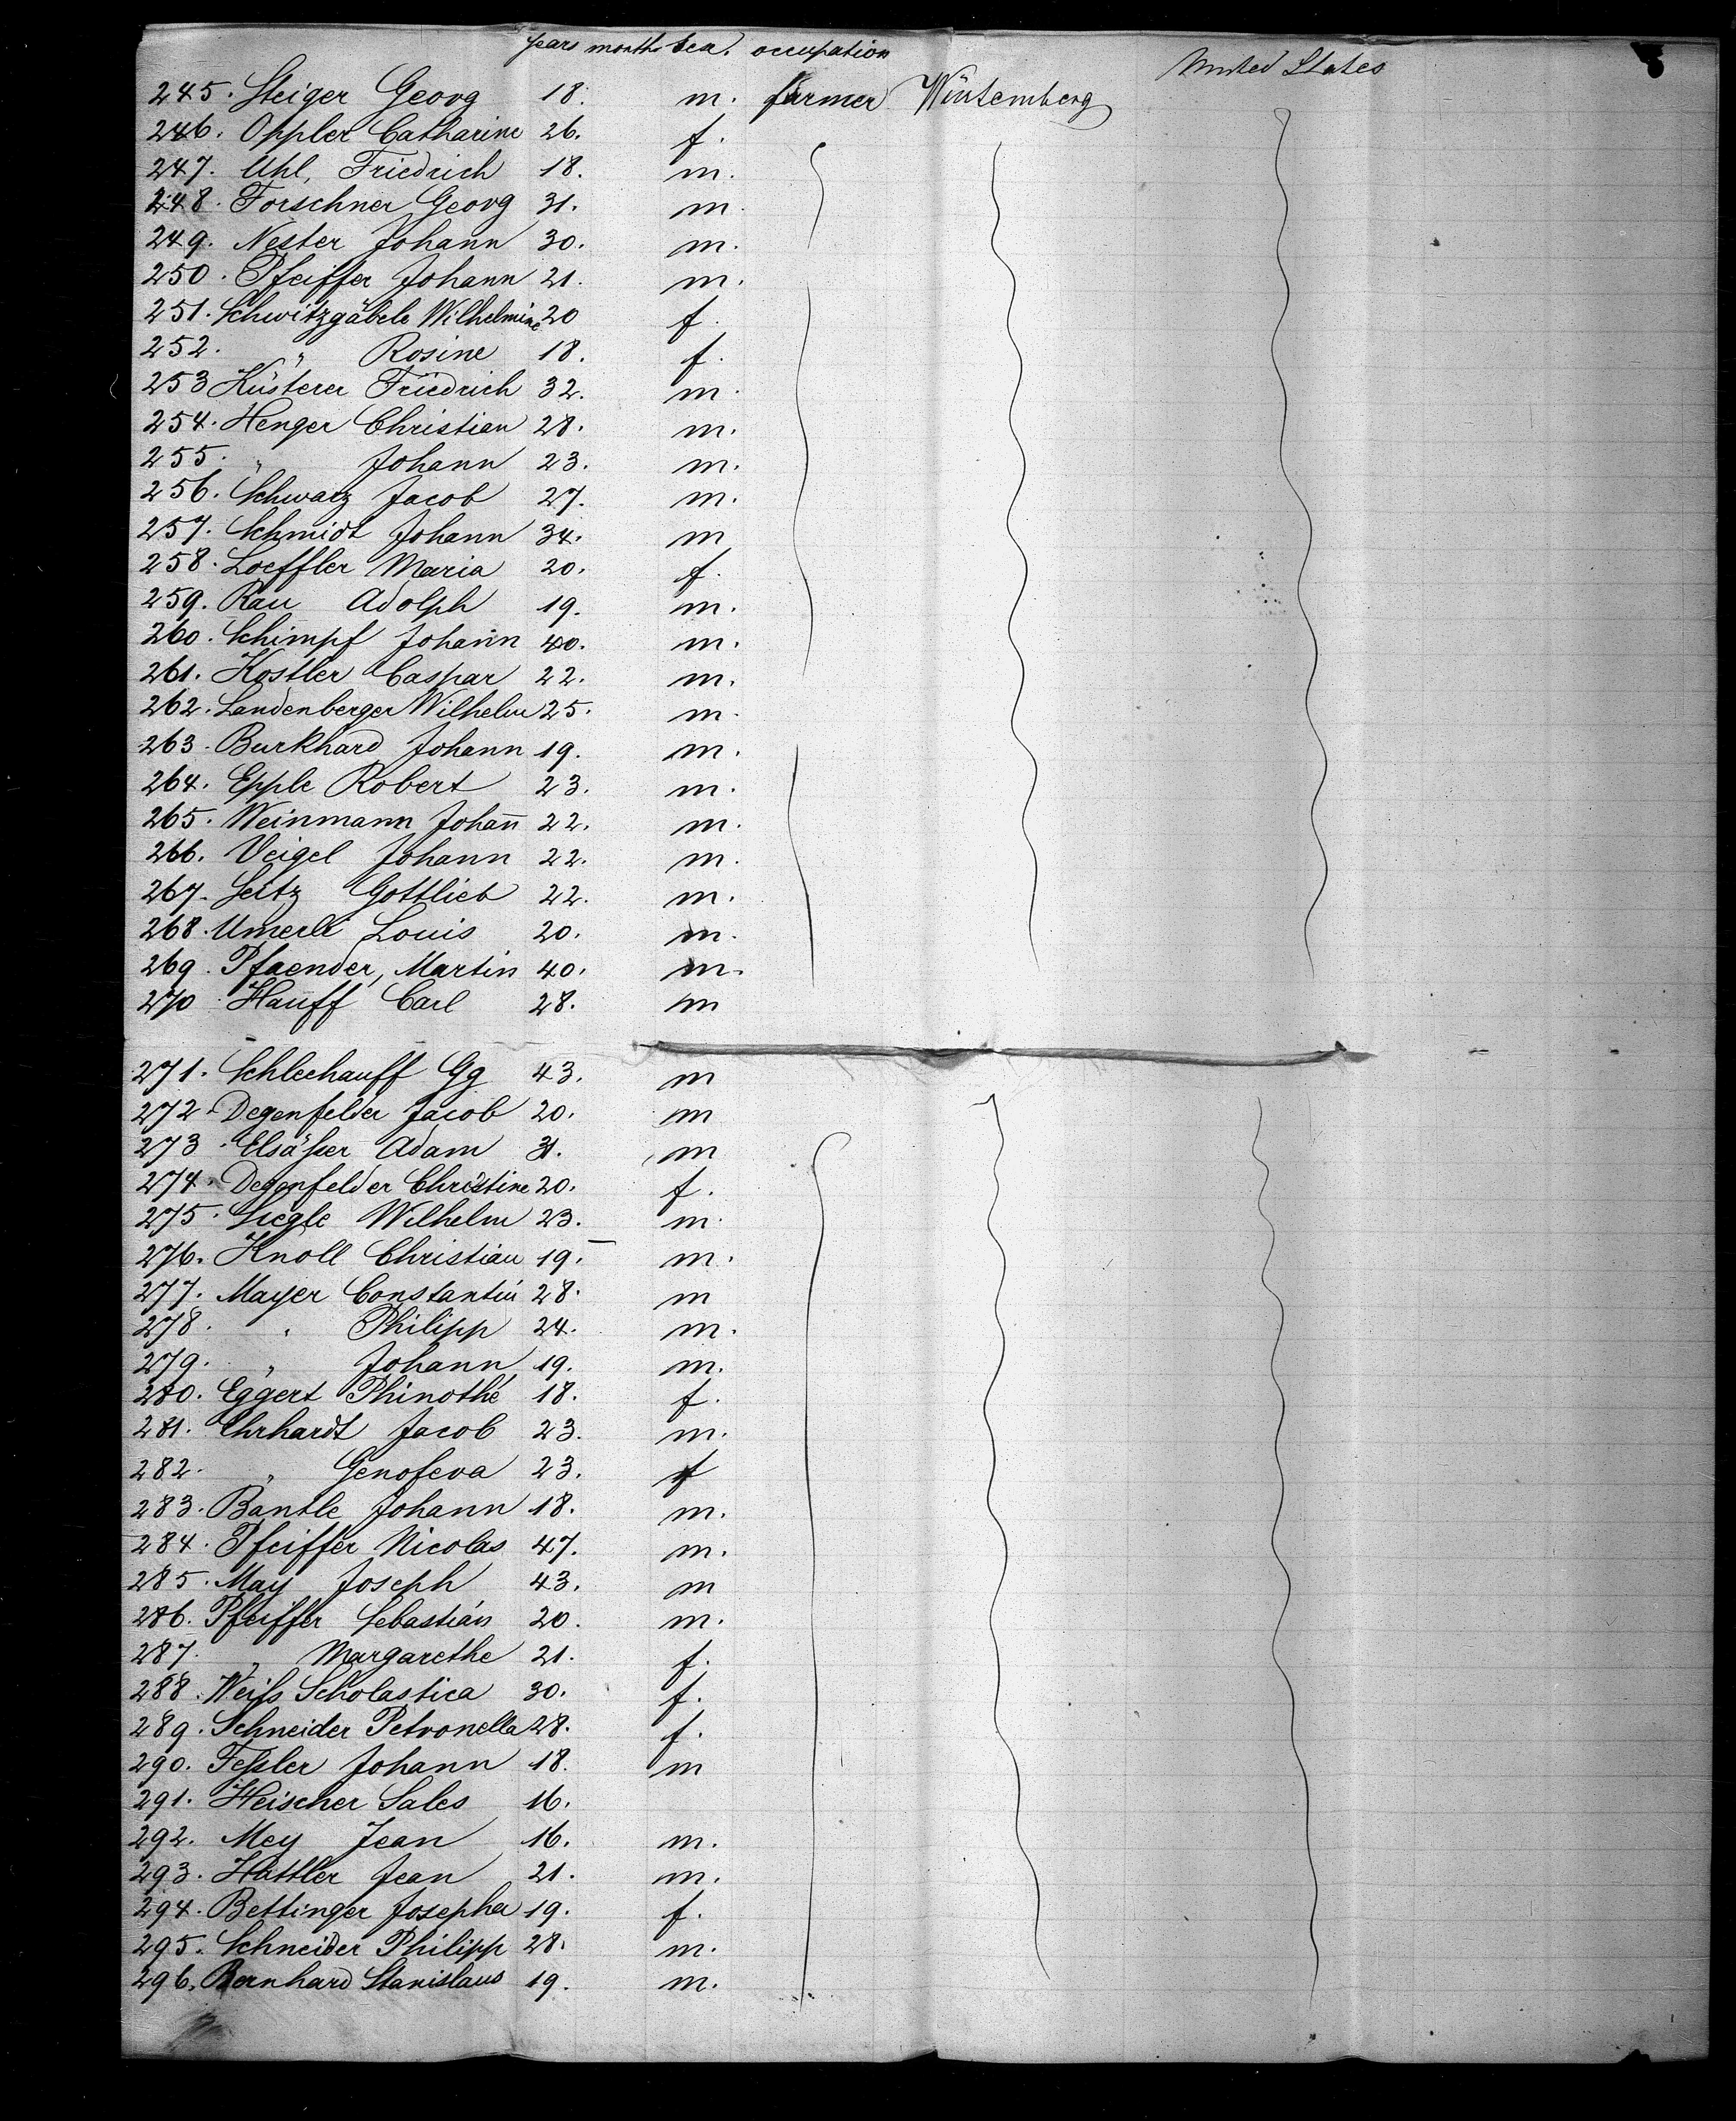 years months sex. occupation United States
245. Steiger Georg 18. m. farmer Würtemberg
246. Oppler Catharine 26. f.
247. Uhl, Friedrich 18. m.
248. Forschner Georg 31. m.
249. Nester Johann 30. m.
250. Pfeiffer Johann 21. m.
251. Schwitzgäbele Wilhelmine 20 f.
252. " Rosine 18. f.
253 Küsterer Friedrich 32. m.
254. Henger Christian 28. m.
255. " Johann 23. m.
256. Schwarz Jacob 27. m.
257. Schmidt Johann 34. m
258. Loeffler Maria 20. f.
259. Rau Adolph 19. m.
260. Schimpf Johann 40. m.
261. Kostler Caspar 22. m.
262. Landenberger Wilhelm 25. m.
263. Burkhard Johann 19. m.
264. Epple Robert 23. m.
265. Weinmann Johan̄ 22. m.
266. Veigel Johann 22. m.
267. Seitz Gottlieb 22. m.
268. Umerle Louis 20. m.
269. Pfaender, Martin 40. m.
270. Hauff Carl 28. m
271. Schlechauff Gg 43. m
272. Degenfelder Jacob 20. m
273. Elsäßer Adam 31. m
274. Degenfelder Christine 20. f.
275. Siegle Wilhelm 23. m.
276. Knoll Christian 19. m.
277. Mayer Constantin 28. m
278. " Philipp 24. m.
279. " Johann 19. m.
280. Eggert Phinothé 18. f.
281. Ehrhardt Jacob 23. m.
282. " Genofeva 23. f
283. Bantle Johann 18. m.
284. Pfeiffer Nicolas 47. m.
285. May Joseph 43. m
286. Pfeiffer Sebastian 20. m.
287. " Margarethe 21. f.
288. Weiß Scholastica 30. f.
289. Schneider Petronella 28. f.
290. Feßler Johann 18. m
291. Heischer Sales 16.
292. Mey Jean 16. m.
293. Hattler Jean 21. m.
294. Bettinger Josepha 19. f.
295. Schneider Philipp 28. m.
296. Bernhard Stanislaus 19. m.